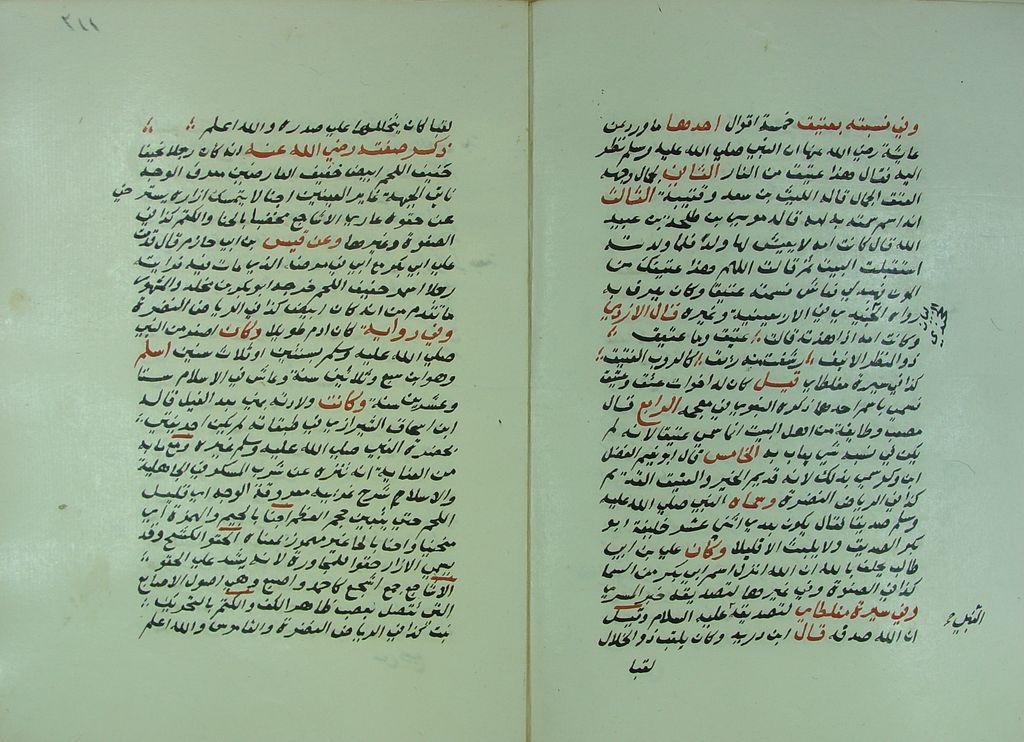 وفي تسميته بعتيق خمسة اقوال احدها ما ورد عن
عايشة رضي الله عنها ان النبي صلي الله عليه وسلم نظر
اليه فقال هذا عتيق من النار الثاني لجمال وجهه
العتق الجمال قاله الليث بن سعد وقتيبة الثالث
انه اسم سمته به امه قاله موسي بن طلحة بن عبيد
الله قال كانت امه لا يعيش لها ولد فلما ولدته
استقبلت البيت ثم قالت اللهم هذا عتيقك من
الموت فهبه لي فعاش فسمته عتيق وكان يعرف به
رواه الخجندي في الاربعينية وغيره قال الازدي
وكانت امه اذا هدته قالت عتيق وما عتيق
ذو المنظر الانيق رشفت منه ريق كالزرنب الفتيق
كذا في سيرة مغلطاي قيل كان له اخوان عتق وعتيق
فسمي باسم احدهما ذكره البغوي في معجمه الرابع قال
مصعب وطايفة من اهل البيت انما سمي عتيقا لانه لم
يكن في نسبه شي يعاب به الخامس قال ابو نعيم الفضل
ابن دكين سمي بذلك لانه قديم الخير والعتيق القديم
كذا في الرياض النضرة وسماه النبي صلي الله عليه
وسلم صديقا فقال يكون بعدي اثني عشر خليفة ابو
بكر الصديق ولا يلبث الا قليلا وكان علي بن ابي
طالب يحلف بالله ان الله انزل اسم ابي بكر من السما
كذا في الصفوة وفي غيرها لتصديقه خبر المسري
وفي سيرة مغلطاي لتصديقه عليه السلام وقيل
ان الله صدقه قال ابن دريد وكان يلقب ذو الخلال
لقبا
٢١١
لقبا كان يخللها علي صدره والله اعلم
ذكر صفته رضي الله عنه انه كان رجلا نحيفا
خفيف اللحم ابيض خفيف العارضين معروق الوجه
ناتي الجبهة غاير العينين اجنا لا يتمسك ازاره يسترخي
عن حقوه عاري الاشاجع مخضبا بالحنا والكتم كذا في
الصفوة وغيرها وعن قيس بن ابي حازم قال قدمت
علي ابي بكر مع ابي في مرضه الذي مات فيه فرايته
رجلا اسمر خفيف اللحم خرجه ابو بكر بن مخلد والمشهور
ما تقدم من انه كان ابيض كذا في الرياض النضرة
وفي رواية كان ادم طويلا وكان اصغر من النبي
صلي الله عليه وسلم بسنتين او ثلاث سنين اسلم
وهو ابن سبع وثلاثين سنة وعاش في الاسلام ستا
وعشرين سنة وكانت ولادته بمني بعد الفيل قاله
ابن اسحاق الشيرازي في طبقاته لم يكن احد يفتي
بحضرة النبي صلي الله عليه وسلم غيره
من العناية انه تنزه عن شرب المسكر في الجاهلية
والاسلام شرح غريبه معروقة الوجه اي قليل
اللحم حتي يتبين حجم العظم اجنا بالجيم والهمزة اي
منحنيا واحنا بالحا غير مهموز بمعناه الحقو الكشح وقد
يسمي الازار حقوا للمجاورة لانه يشد علي الحقو
الاشاجع جمع اشجع كاحمد واصبع وهي اصول الاصابع
التي تتصل بعصب ظاهر الكف والكتم بالتحريك
نبت كذا في الرياض النضرة والقاموس والله اعلم